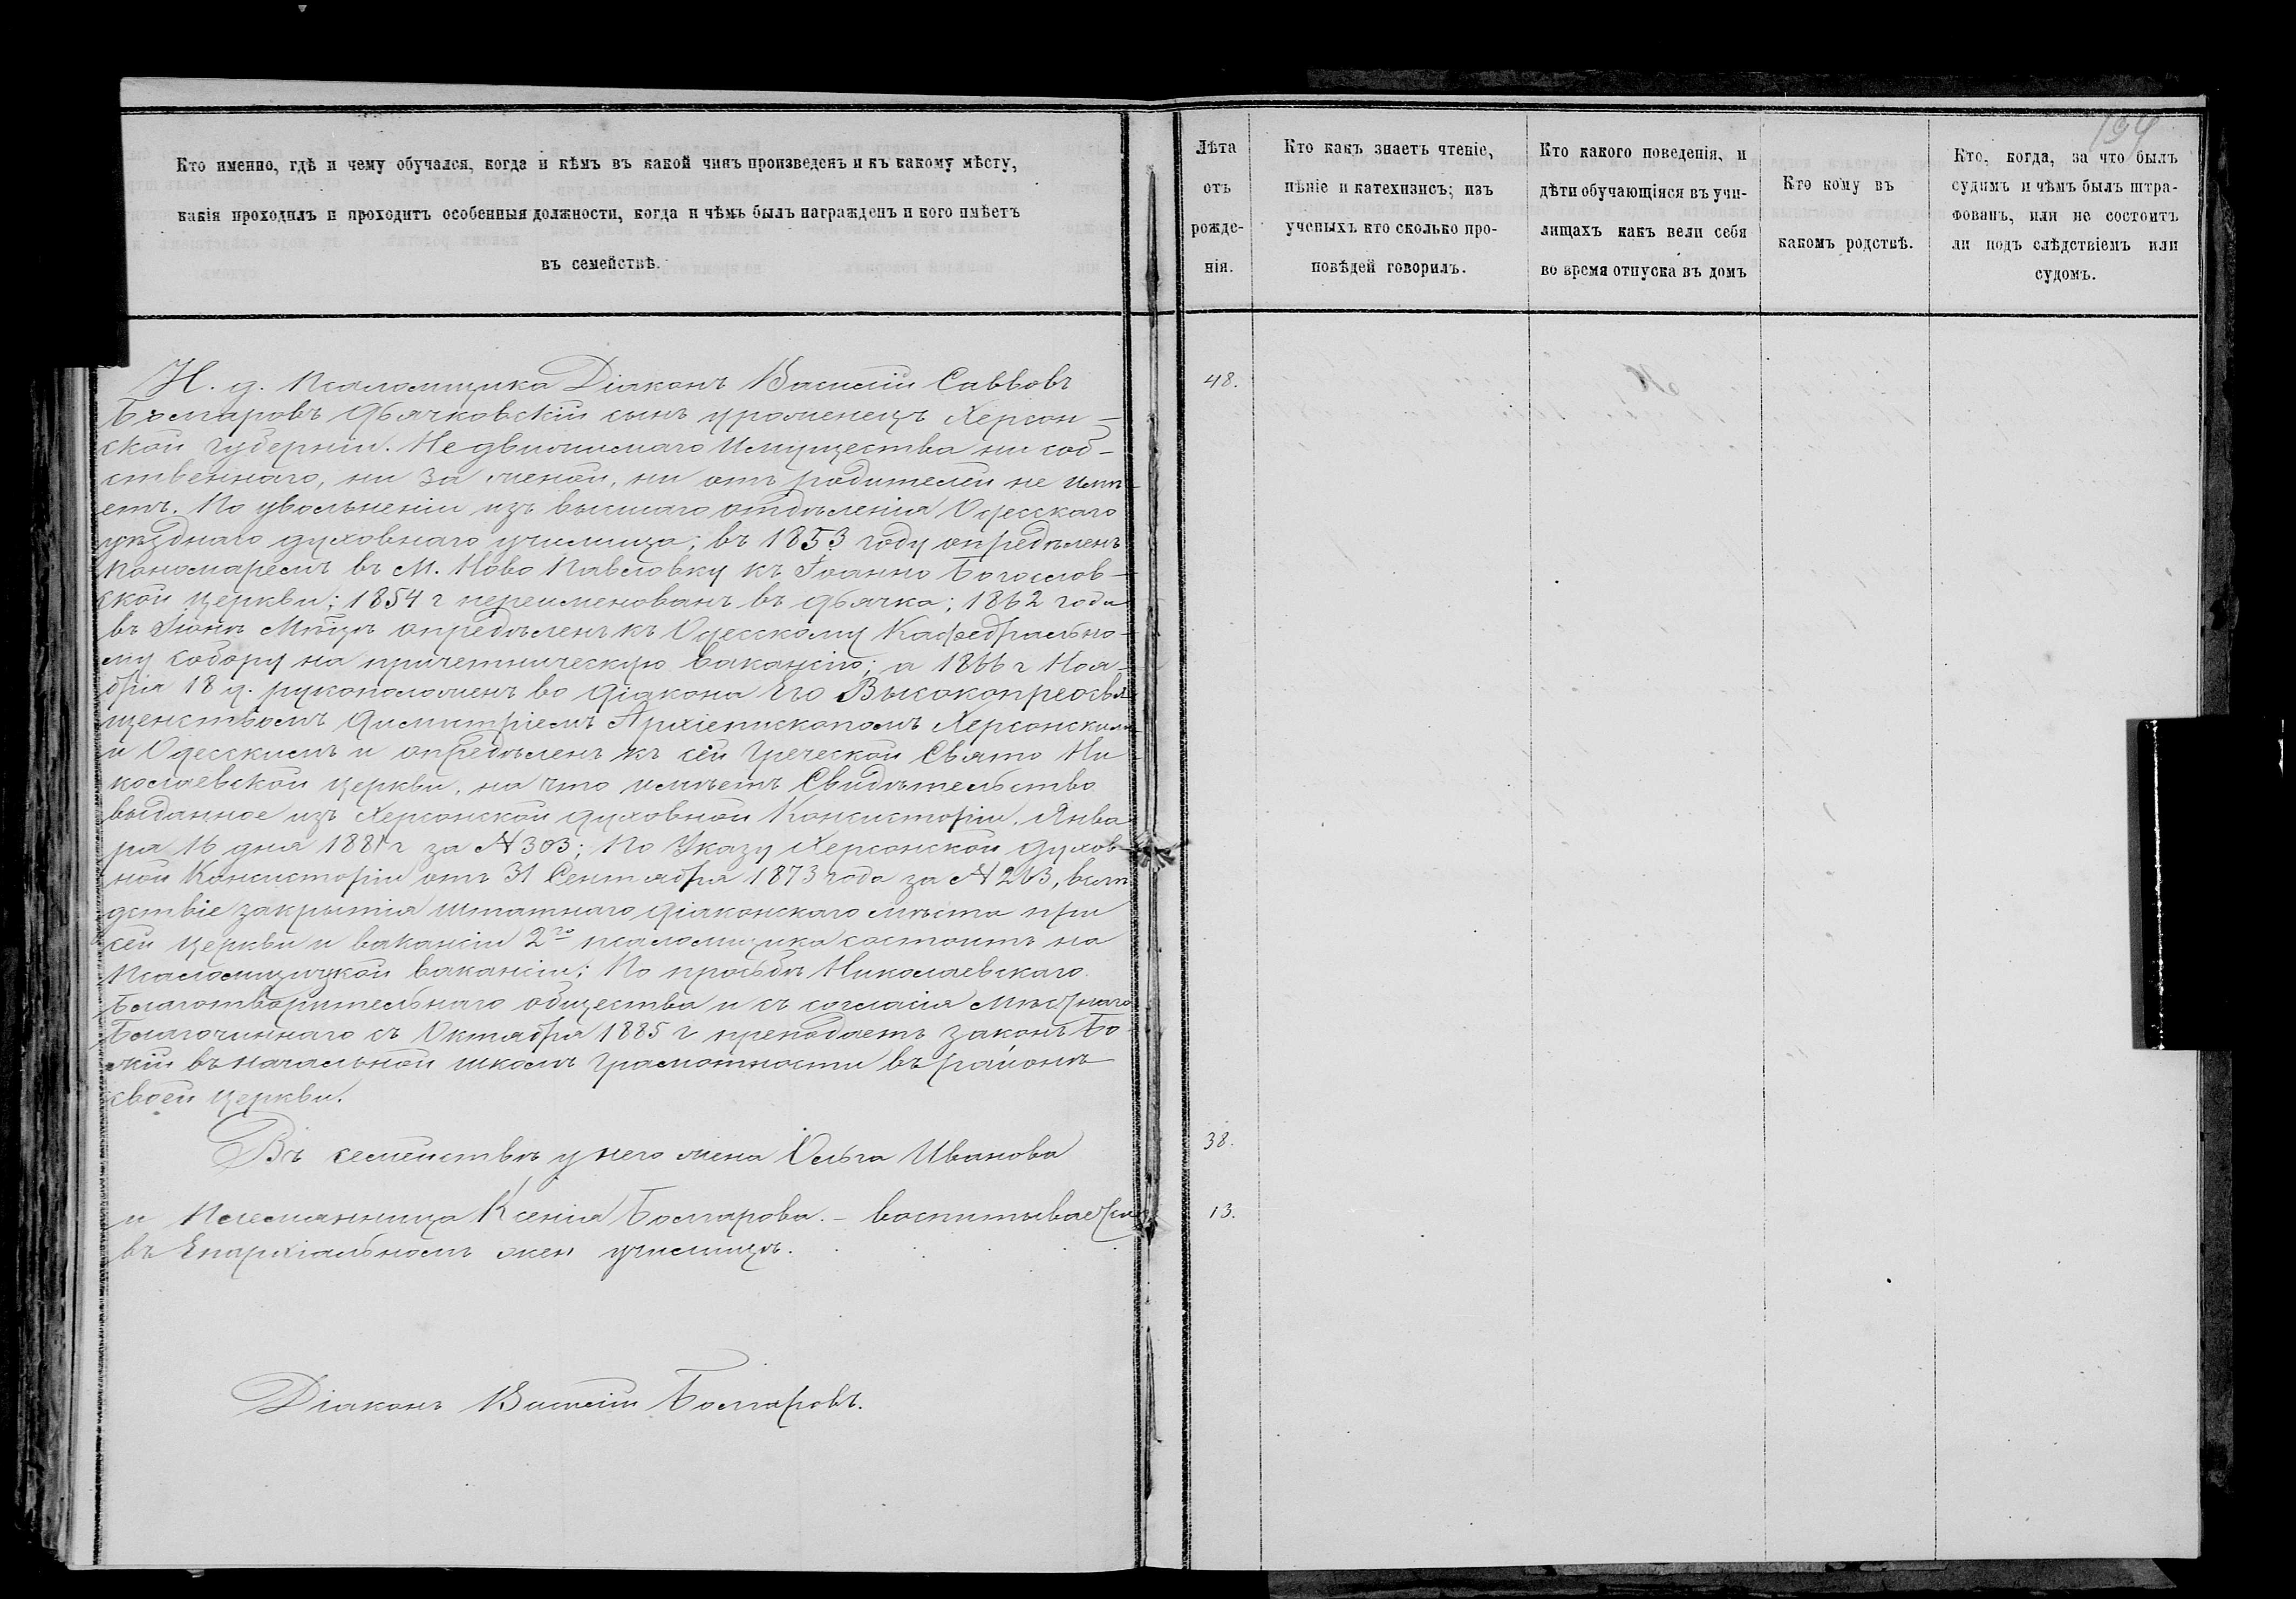 194
Кто именно, гдѣ и чему обучался, когда и кѣмъ въ какой чинъ произведенъ и къ какому мѣсту,
какія проходилъ и проходитъ особенныя должности, когда и чѣмъ былъ награжденъ и кого имѣетъ
въ семействѣ.
Лѣта
отъ
рожде-
нія.
Кто какъ знаетъ чтеніе,
пѣніе и катехизисъ; изъ
ученыхъ кто сколько про-
повѣдей говорилъ.
Кто какого поведенія, и
дѣти обучающіяся въ учи-
лищахъ какъ вели себя
во время отпуска въ домъ
Кто кому въ
какомъ родствѣ.
Кто, когда, за что былъ
судимъ и чѣмъ былъ штра-
фованъ, или не состоитъ
ли подъ слѣдствіемъ или
судомъ.
И. д. Псаломщика Діаконъ Василій Саввовъ 48.
Болгаровъ дьячковскій сынъ уроженецъ Херсон-
ской губерніи. Недвижимаго имущества ни соб-
ственнаго, ни за женой, ни отъ родителей не имѣ-
етъ. По увольненіи изъ высшаго отдѣленія Одесскаго
уѣзднаго духовнаго училища; въ 1853 году опредѣленъ
Пономаремъ въ м. Ново Павловку къ Іоанно Богослов-
ской церкви; 1854 г переименованъ въ дьячка; 1862 года
въ Іюнѣ Мѣцѣ опредѣленъ къ Одесскому Кафедрально-
му Собору на причетническую вакансію; а 1866 г Ноя-
брія 18 д. рукоположенъ во діакона Его Высокопреосвя-
щенствомъ Димитріемъ Архіепископомъ Херсонскимъ
и Одесскимъ и опредѣленъ къ сей Греческой Свято Ни-
колаевской церкви, на что имѣетъ Свидѣтельство
выданное изъ Херсонской духовной Консисторіи, Янва-
ря 16 дня 1881 г за № 303; По Указу Херсонской Духов-
ной Консисторіи отъ 31 Сентября 1873 года за № 263, вслѣ-
дствіе закрытія штатнаго діаконскаго мѣста при
сей церкви и вакансіи 2го псаломщика состоитъ на
Псаломщицкой вакансіи; По просьбѣ Николаевскаго
Благотворительнаго общества и съ согласія мѣстнаго
Благочиннаго съ Октября 1885 г преподаетъ законъ Бо-
жій въ начальной школѣ грамотности въ районѣ
своей церкви.
Въ семействѣ у него жена Ольга Иванова 38.
и Племянница Ксенія Болгарова. - воспитывается 13.
въ Епархіальномъ жен училищѣ.
Діаконъ Василій Болгаровъ.